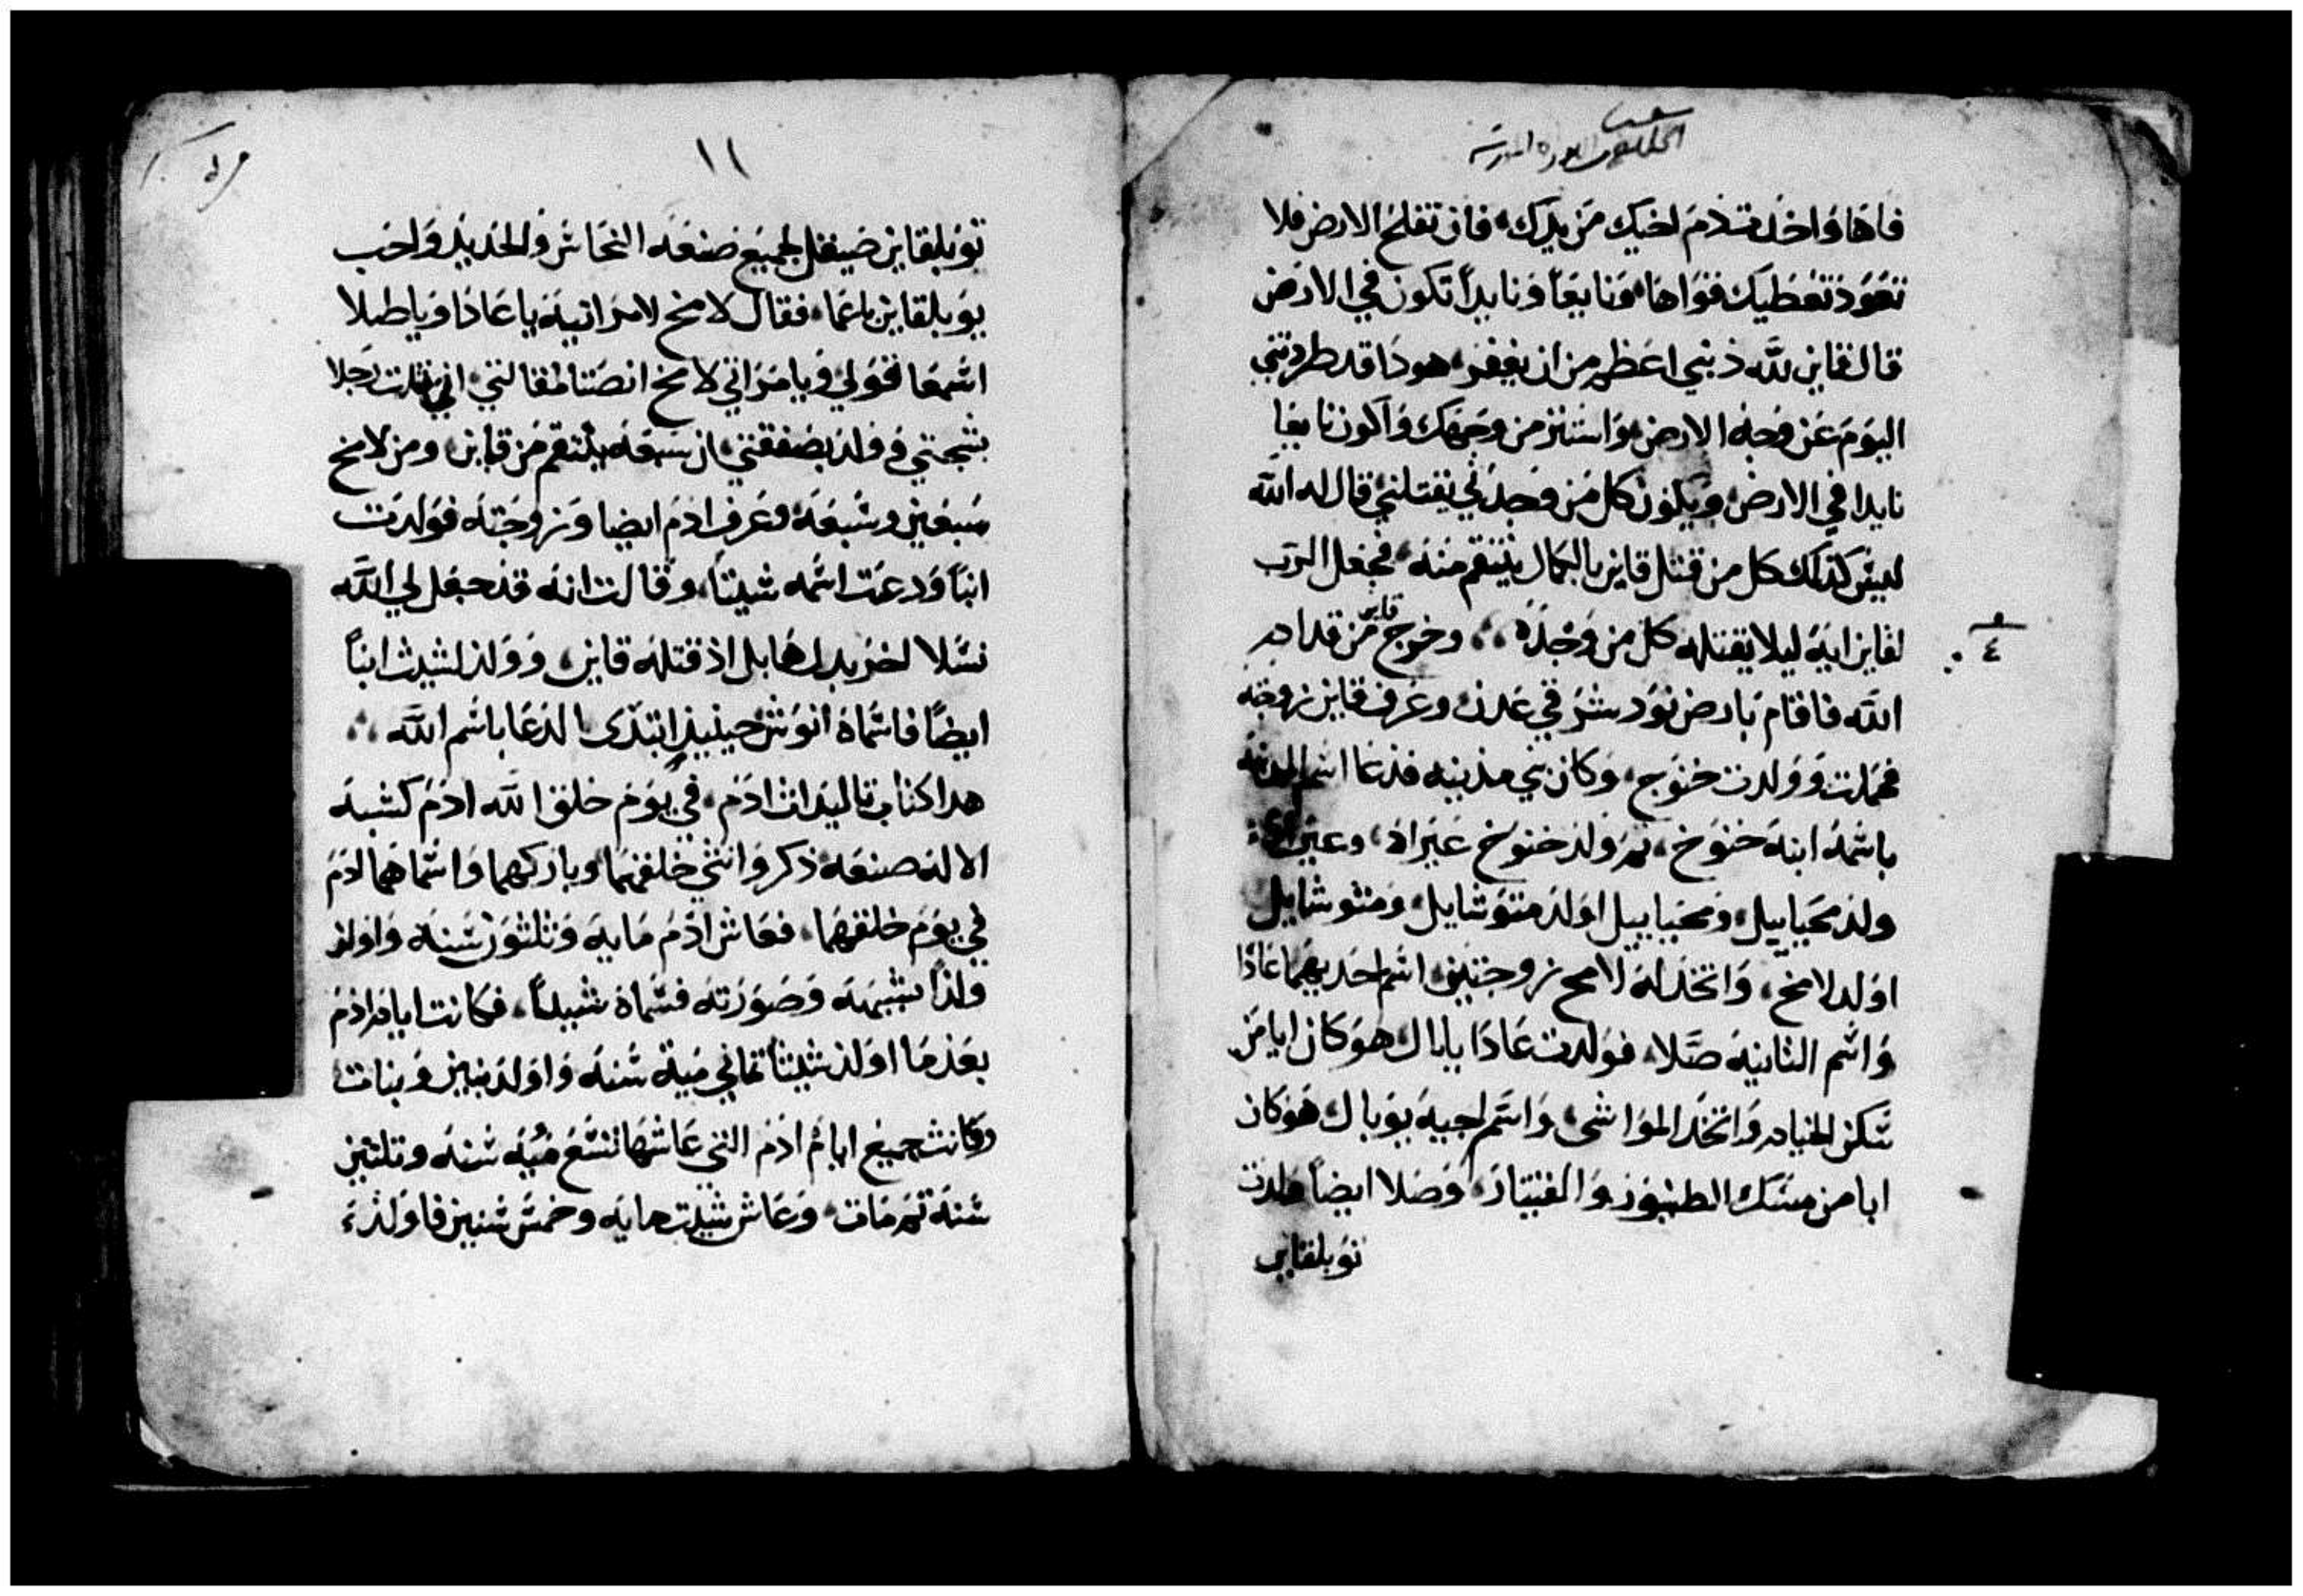 فاها واخذت دم اخيك من يدك، فان تفلح الارض فلا
تعود تعطيك قواها، ونايعا ونايدا تكون في الارض
قال قاين لله ذنبي اعظم من ان يغفر، هودا قد طردتني
اليوم عن وجه الارض، واستتر من وجهك واكون نايعا
نايدا في الارض، ويكون كل من وجدني يقتلني، قال له الله
ليس كذلك كل من قتل قاين بالكمال ينتقم منه، فجعل الرب
لقاين ايه ليلا يقتله كل من وجده، وخرج قاين من قدام
الله فاقام بارض نود شرقي عدن، وعرف قاين زوجته
فحملت وولدت خنوج، وكان بني مدينه فدعا اسم المدينه
باسم ابنه خنوخ، ثم ولد خنوخ عيراد، وعيراد
ولد محياييل، ومحياييل اولد متوشايل، ومتوشايل
اولد لامخ، واتخذ له لامخ زوجتين، اسم احديهما عادا
واسم الثانيه صلا، فولدت عادا يابال، هو كان ابا من
سكن الخيام واتخد المواشي، واسم اخيه يوبال، هو كان
ابا من مسك الطنبور والقيثار، وصلا ايضا ولدت
توبلقاين
١١
توبلقاين صيقل لجميع صنعه النحاس والحديد واخت
يوبلقاين ناعما، فقال لامخ لامراتيه يا عادا ويا صلا
اسمعا قولي ويا مراتي لامخ انصتا لمقالتي، اني قتلت رجلا
بشجتي وولد بصفقتي، ان سبعه ينتقم من قاين، ومن لامخ
سبعين وسبعه، وعرف ادم ايضا زوجته فولدت
ابنا ودعت اسمه شيتا، وقالت انه قد جعل لي الله
نسلا اخر بدل هابل اذ قتله قاين، وولد لشيث ابنا
ايضا فاسماه انوش، حينيذ ابتدى الدعا باسم الله
هدا كتاب تاليدات ادم، في يوم خلق الله ادم كشبه
الاله صنعه، ذكر وانثي خلقهما وباركهما واسماهما ادم
في يوم خلقهما، فعاش ادم مايه وثلثون سنه واولد
ولدا بشبهه وصورته فسماه شيثا، فكانت ايام ادم
بعد ما اولد شيثا ثماني ميه سنه واولد بنين وبنات
وكانت جميع ايام ادم التي عاشها تسع ميه سنه وتلتين
سنه ثم مات، وعاش شيت مايه وخمس سنين فاولد